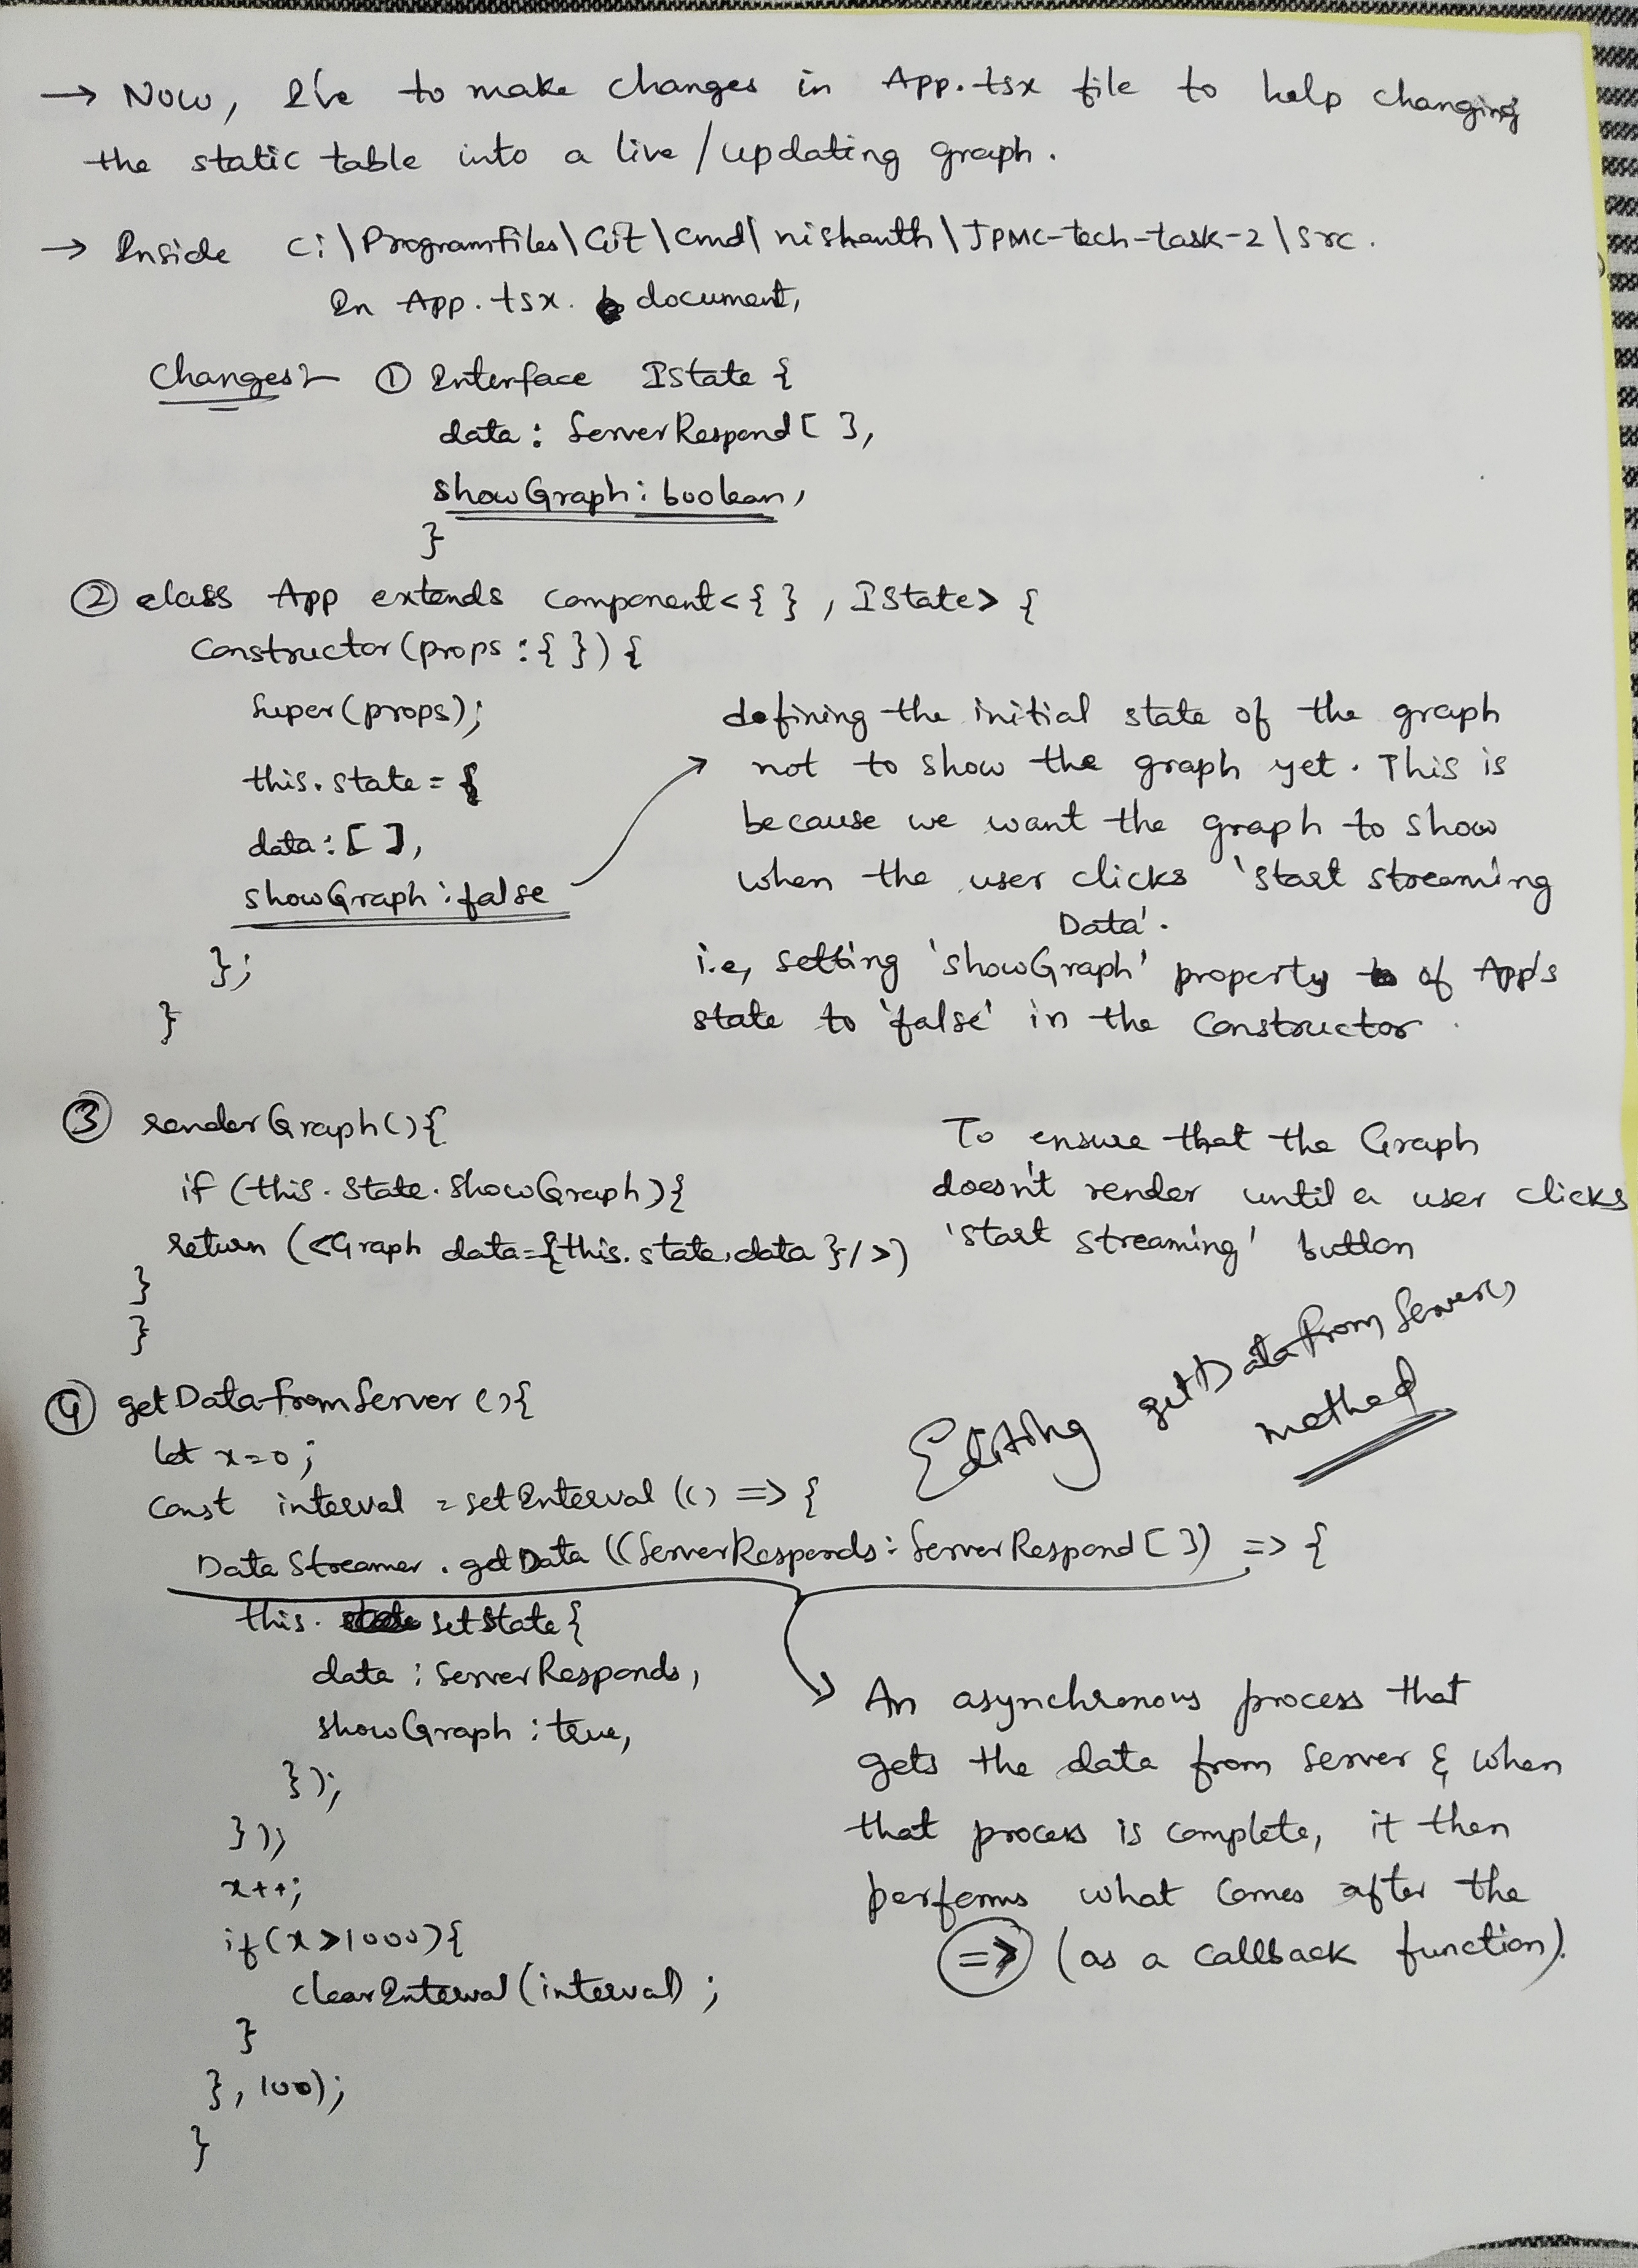 → Now, I've to make changes in App.tsx file to help changing
the static table into a live/updating graph.
→ Inside C:\ProgramFiles\Git\Cmd\nishanth\JPMC-tech-task-2\src.
In App.tsx. document,
Changes:- ① Interface IState {
data: ServerRespond[ ],
showGraph: boolean,
}
② class App extends Component<{ }, IState> {
Constructor(props:{ }){
Super(props);
this.state = {
data:[ ],
showGraph:false
};
}
defining the initial state of the graph
not to show the graph yet. This is
because we want the graph to show
when the user clicks 'Start Streaming
Data'.
i.e, setting 'showGraph' property of App's
state to 'false' in the Constructor.
③ renderGraph(){
if (this.state.showGraph){
return (<Graph data={this.state.data}/>)
}
}
To ensure that the Graph
doesn't render until a user clicks
'Start Streaming' button
④ getDataFromServer(){
let x=0;
Const interval = setInterval(() => {
DataStreamer.getData((ServerResponds: ServerRespond[ ]) => {
this. setState{
data: ServerResponds,
showGraph: true,
});
});
x++;
if(x>1000){
clearInterval(interval);
}
},100);
}
Editing getDataFromServer()
method
An asynchronous process that
gets the data from Server & when
that process is complete, it then
performs what comes after the
=> (as a callback function).